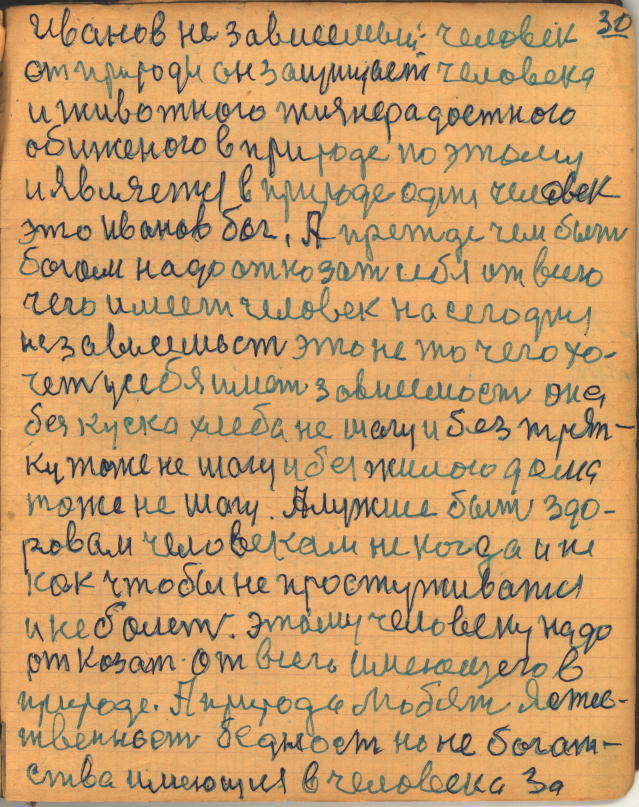 30
Иванов не зависемый человек
от природы он защищает человека
и животного жизнерадостного
обиженого в природе по этому
и является в природе один человек
это Иванов бог. А прежде чем быт
богом надо отказат себя от всего
чего имеет человек на сегодня
не зависемост это не то чего хо-
чет усебя имет зависемост она
без куска хлеба не шагу и без тряп-
ку тоже не шагу и без жилого дома
тоже не шагу. А лужше быт здо-
ровам человекам не когда и не
как чтобы не простуживатся
и не болет. этому человеку надо
отказат от всего имеющего в
природе. А природа любят ястес-
твенност бедност но не богат-
ства имеющия в человека За